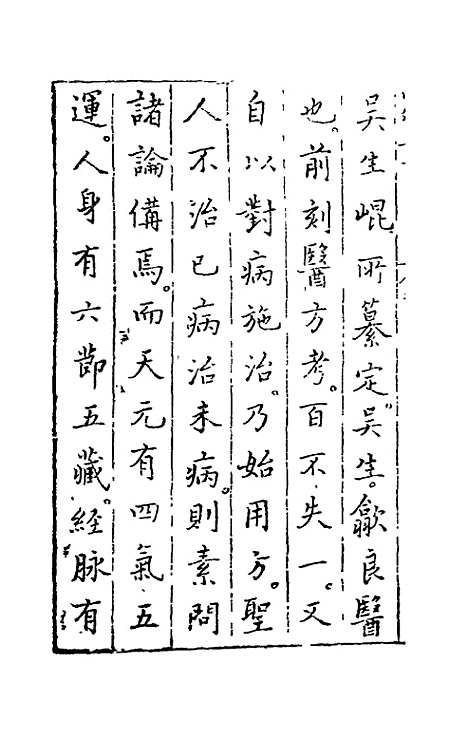 吳生崐所纂定吳生。歙良醫
也。前刻醫方考。百不失一。又
自以對病施治。乃始用方。聖
人不治已病治未病。則素問
諸論備焉。而天元有四氣五
運。人身有六節五藏。経脉有